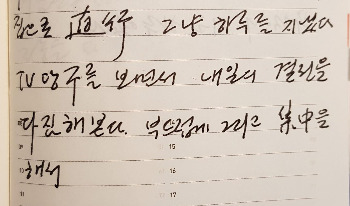 집으로 直行 그냥 하루를 지냈다
TV 앙주를 보면서 내일의 결린을
다짐해본다. 부드럽게 그리고 集中을
해서
15
16
11 17